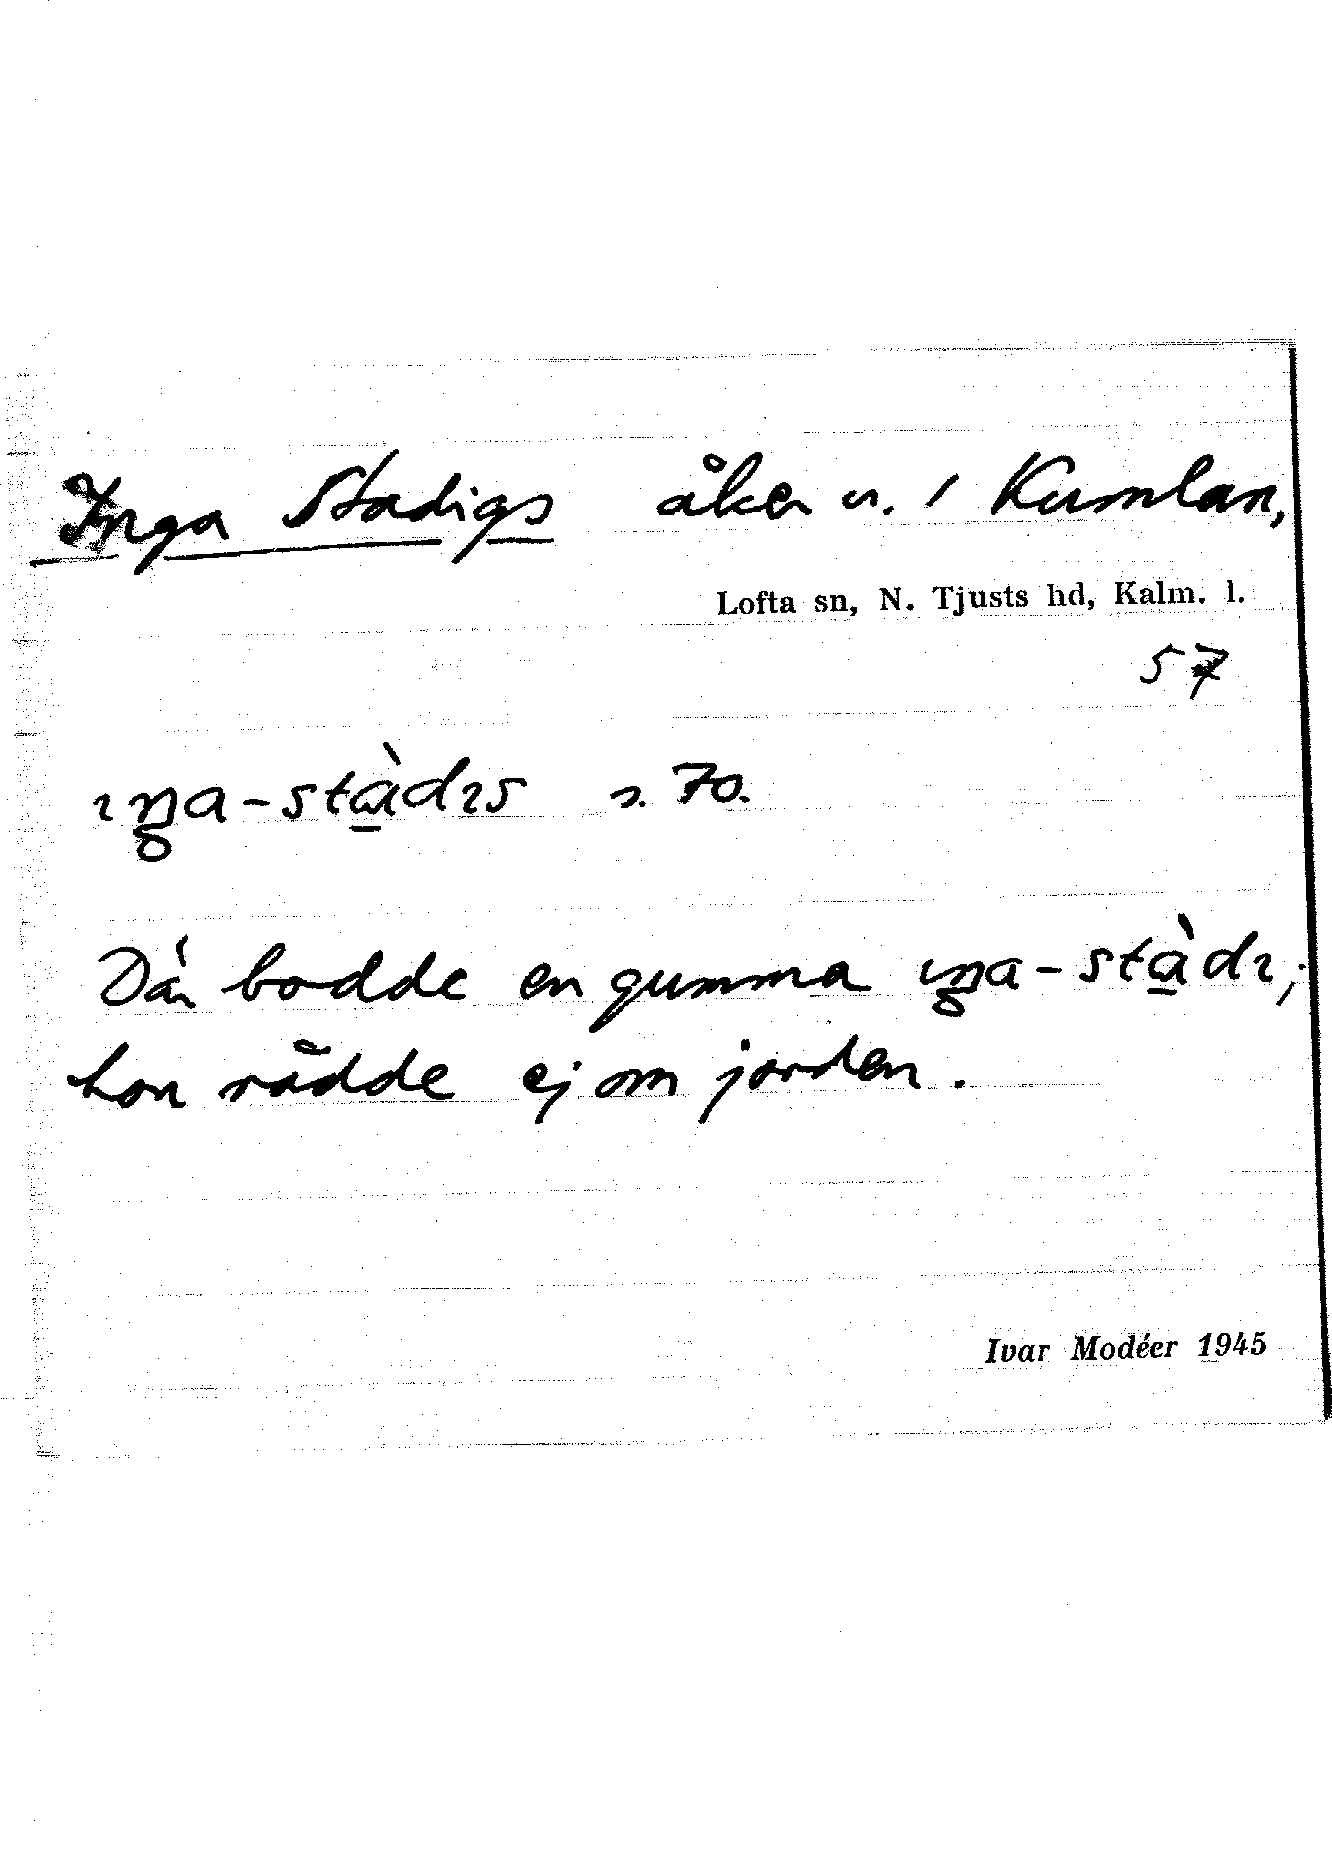 Inga Stadigs åker u. 1 Kumlan,
Lofta sn, N. Tjusts hd, Kalm. l.
57
ıŋa-stàdıs s. 70.
Där bodde en gumma ıŋa-stàdı;
hon rådde ej om jorden.
Ivar Modéer 1945